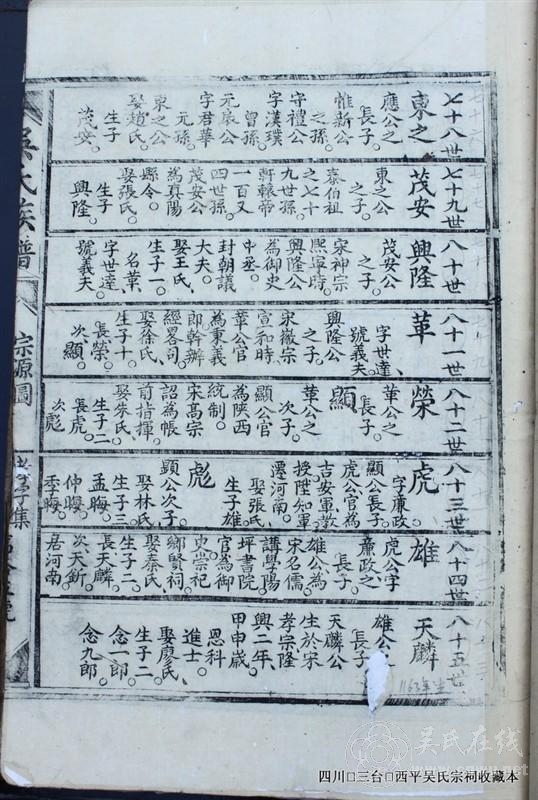 七十八世
東之
應公之
長子。
惟新公
之孫。
守禮公
字漢璞
曾孫。
元康公
字君華
元孫。
東之公
娶趙氏。
生子
茂安。
七十九世
茂安
東之公
之子。
泰伯祖
之七十
九世孫。
軒轅帝
一百又
四世孫。
茂安公
為真陽
縣令。
娶張氏。
生子
興隆。
八十世
興隆
茂安公
之子。
宋神宗
熙寧時。
興隆公
為御史
中丞。
封朝議
大夫。
娶王氏、
生子一。
名革、
字世達、
號義夫。
八十一世
革
字世達、
號義夫。
興隆公
之子。
宋徽宗
宣和時
革公官
為秉義
郎幹辦
經略司。
娶徐氏、
生子十。
長榮。
次顯。
八十二世
榮
革公之
長子。
顯
革公之
次子。
顯公官
為陝西
統制。
宋高宗
詔為帳
前指揮。
娶朱氏。
生子二
長虎。
次彪。
八十三世
虎
字廉政
顯公長子。
虎公官為
吉安軍教
授陞知軍
遷河南。
娶張氏、
生子雄。
彪
顯公次子。
娶林氏、
生子三
孟晦。
仲晦。
季晦。
八十四世
雄
虎公字
廉政之
長子。
雄公為
宋名儒
講學陽
坪書院
官為御
史崇祀
鄉賢祠。
娶泰氏、
生子二、
長天麟。
次天斦。
居河南。
八十五世
天麟
雄公之
長子。
天麟公
生於宋
孝宗隆
興二年、
甲申歲
恩科
進士。
娶廖氏、
生子二
念一郎。
念九郎。
吳氏族譜
宗源圖
吴氏在线
四川□三台□西平吴氏宗祠收藏本